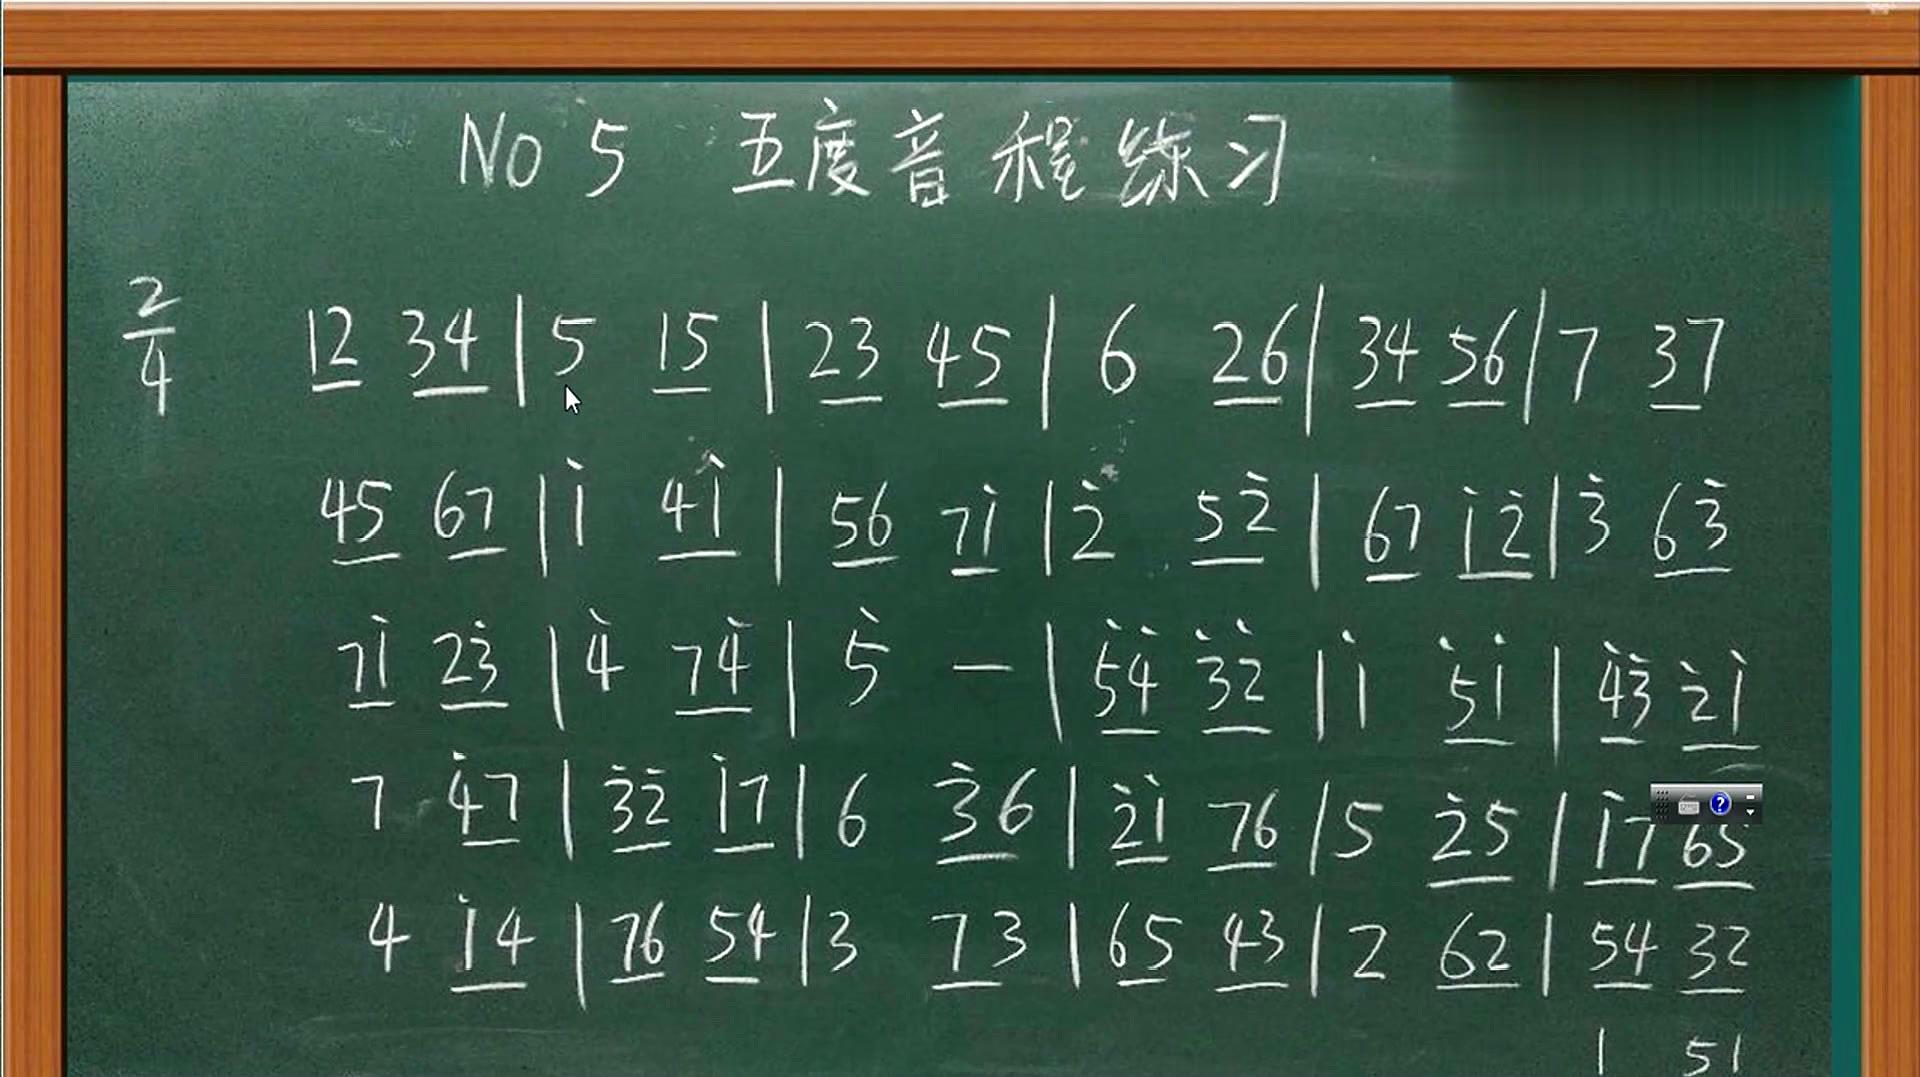 No 5 五度音程练习
2/4 12 34 | 5 15 | 23 45 | 6 26 | 34 56 | 7 37
45 67 | i 4i | 56 7i | 2̇ 52̇ | 67 i2̇ | 3̇ 63̇
7i 23̇ | 4̇ 74̇ | 5̇ — | 5̇4̇ 3̇2̇ | i 5̇i | 4̇3̇ 2̇i
7 4̇7 | 3̇2̇ i7 | 6 3̇6 | 2̇i 76 | 5 2̇5 | i7 65
4 i4 | 76 54 | 3 73 | 65 43 | 2 62 | 54 32
1 51